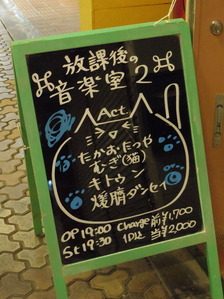 放課後の
音楽室2
Act
たかお・たつや
むぎ(猫)
キトゥン
煖腈ダンセイ
OP 19:00 Charge 前¥1,700
St 19:30 1D込 当¥2,000